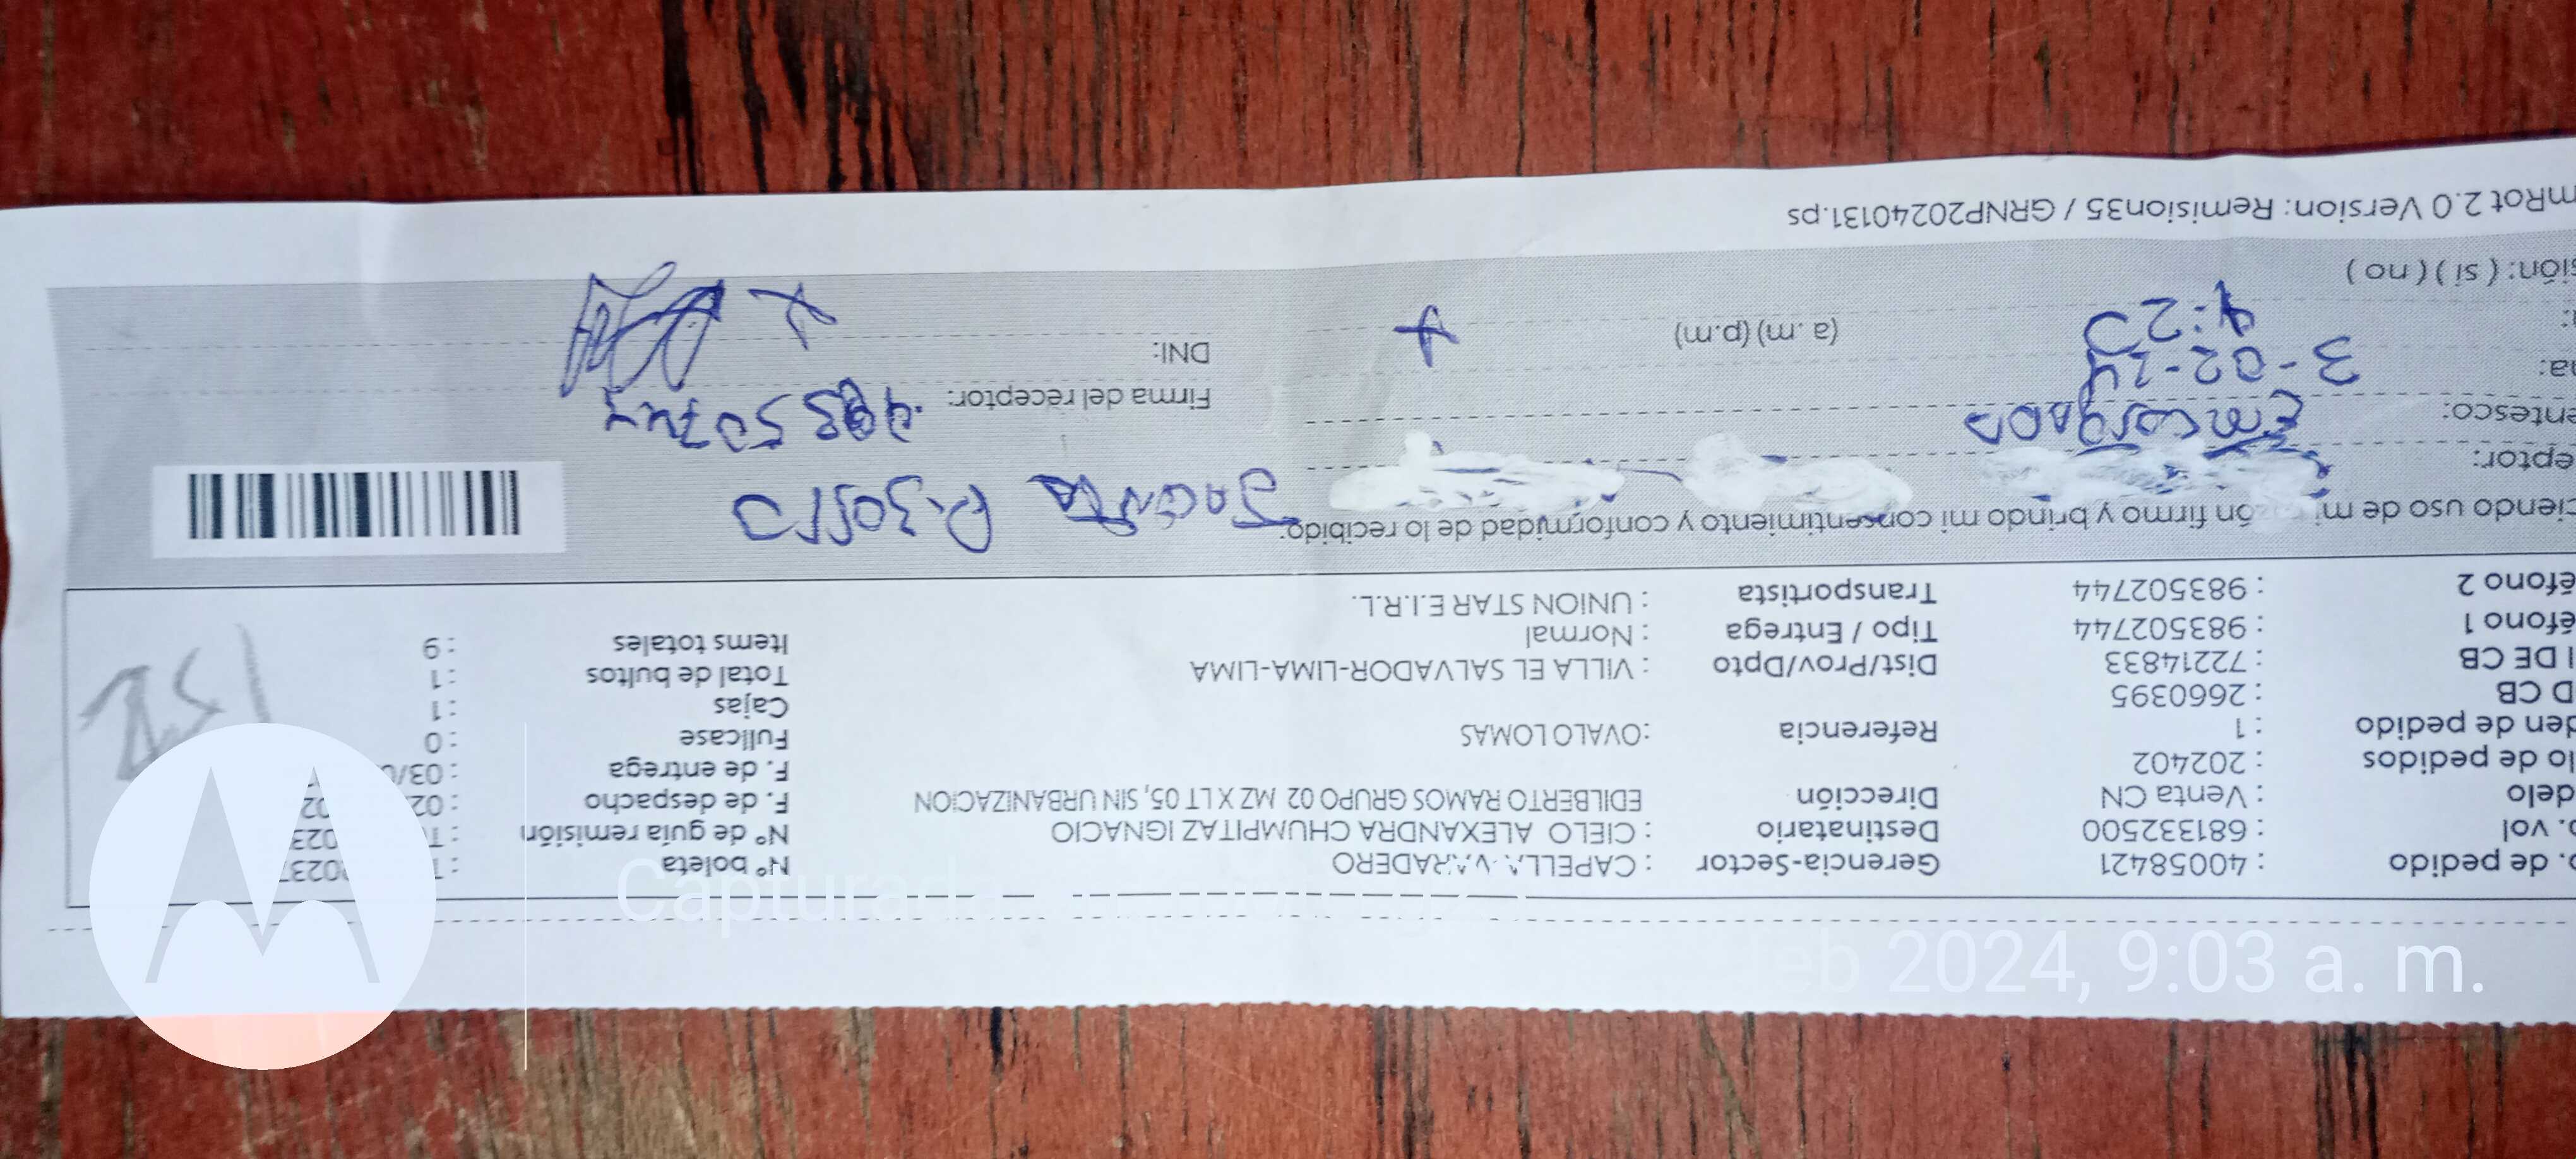 o. de pedido : 40058421 Gerencia-Sector : CAPELLA VARADERO N° boleta
o. vol : 681332500 Destinatario : CIELO ALEXANDRA CHUMPITAZ IGNACIO N° de guía remisión
delo : Venta CN Dirección EDILBERTO RAMOS GRUPO 02 MZ X LT 05, SIN URBANIZACION F. de despacho
lo de pedidos : 202402 F. de entrega
den de pedido : 1 Referencia :OVALO LOMAS Fullcase : 0
D CB : 2660395 Cajas : 1
I DE CB : 72214833 Dist/Prov/Dpto : VILLA EL SALVADOR-LIMA-LIMA Total de bultos : 1
éfono 1 : 983502744 Tipo / Entrega : Normal Items totales : 9
éfono 2 : 983502744 Transportista : UNION STAR E.I.R.L.
ciendo uso de mi ón firmo y brindo mi consentimiento y conformidad de lo recibido:
eptor:
entesco: Encargado
a: 3-02-24 Firma del receptor:
: 4:20 (a.m) (p.m) DNI:
sión: ( si ) ( no )
mRot 2.0 Version: Remision35 / GRNP20240131.ps
Capturada
feb 2024, 9:03 a. m.